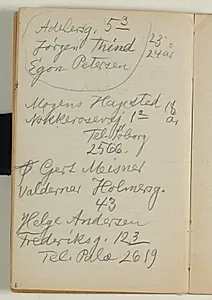 Adelerg. 5 3
Jørgen Thind 23 og
Egon Petersen 24 år
Mogens Hagested 18 år
Nøkkerosevej 12
Tel. Søborg
2566.
Gert Meisner
Valdemar Holmersg.
43
Helge Andersen
Frederiksg. 123
Tel. Palæ 2619